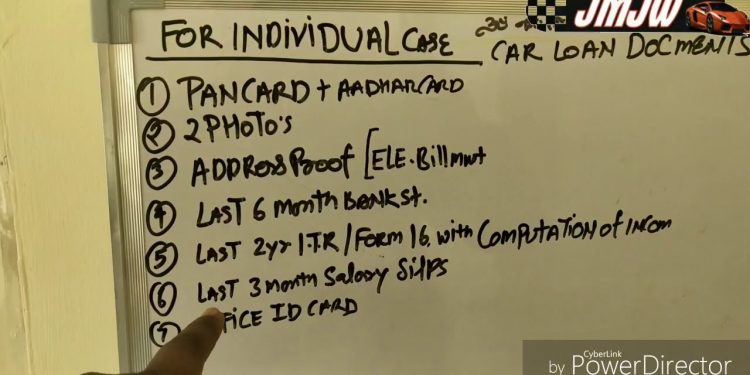 JMJW
FOR INDIVIDUAL CASE
CAR LOAN DOCMENTS
1 PANCARD + AADHAR CARD
2 2 PHOTO'S
3 ADDRESS PROOF [ELE. Bill
4 LAST 6 month BANK St.
5 LAST 2yr I.T.R / FORM 16. with COMPUTATION of INCOM
6 LAST 3 month Salary Slips
7 FICE ID CARD
CyberLink
by PowerDirector